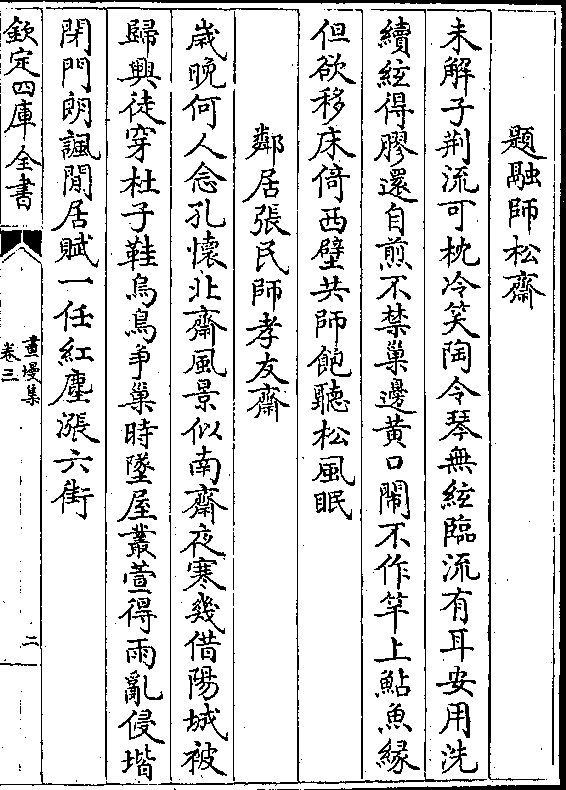 題融師松齋
未解子荆流可枕冷笑陶令琴無絃臨流有耳安用洗
續絃得膠還自煎不禁巢邊黄口鬧不作竿上鮎魚緣
但欲移床倚西壁共師飽聽松風眠
鄰居張民師孝友齋
歲晚何人念孔懷北齋風景似南齋夜寒幾借陽城被
歸興徒穿杜子鞋烏鳥爭巢時墜屋叢萱得雨亂侵堦
閉門朗諷閒居賦一任紅塵漲六街
欽定四庫全書
畫墁集
卷三
二